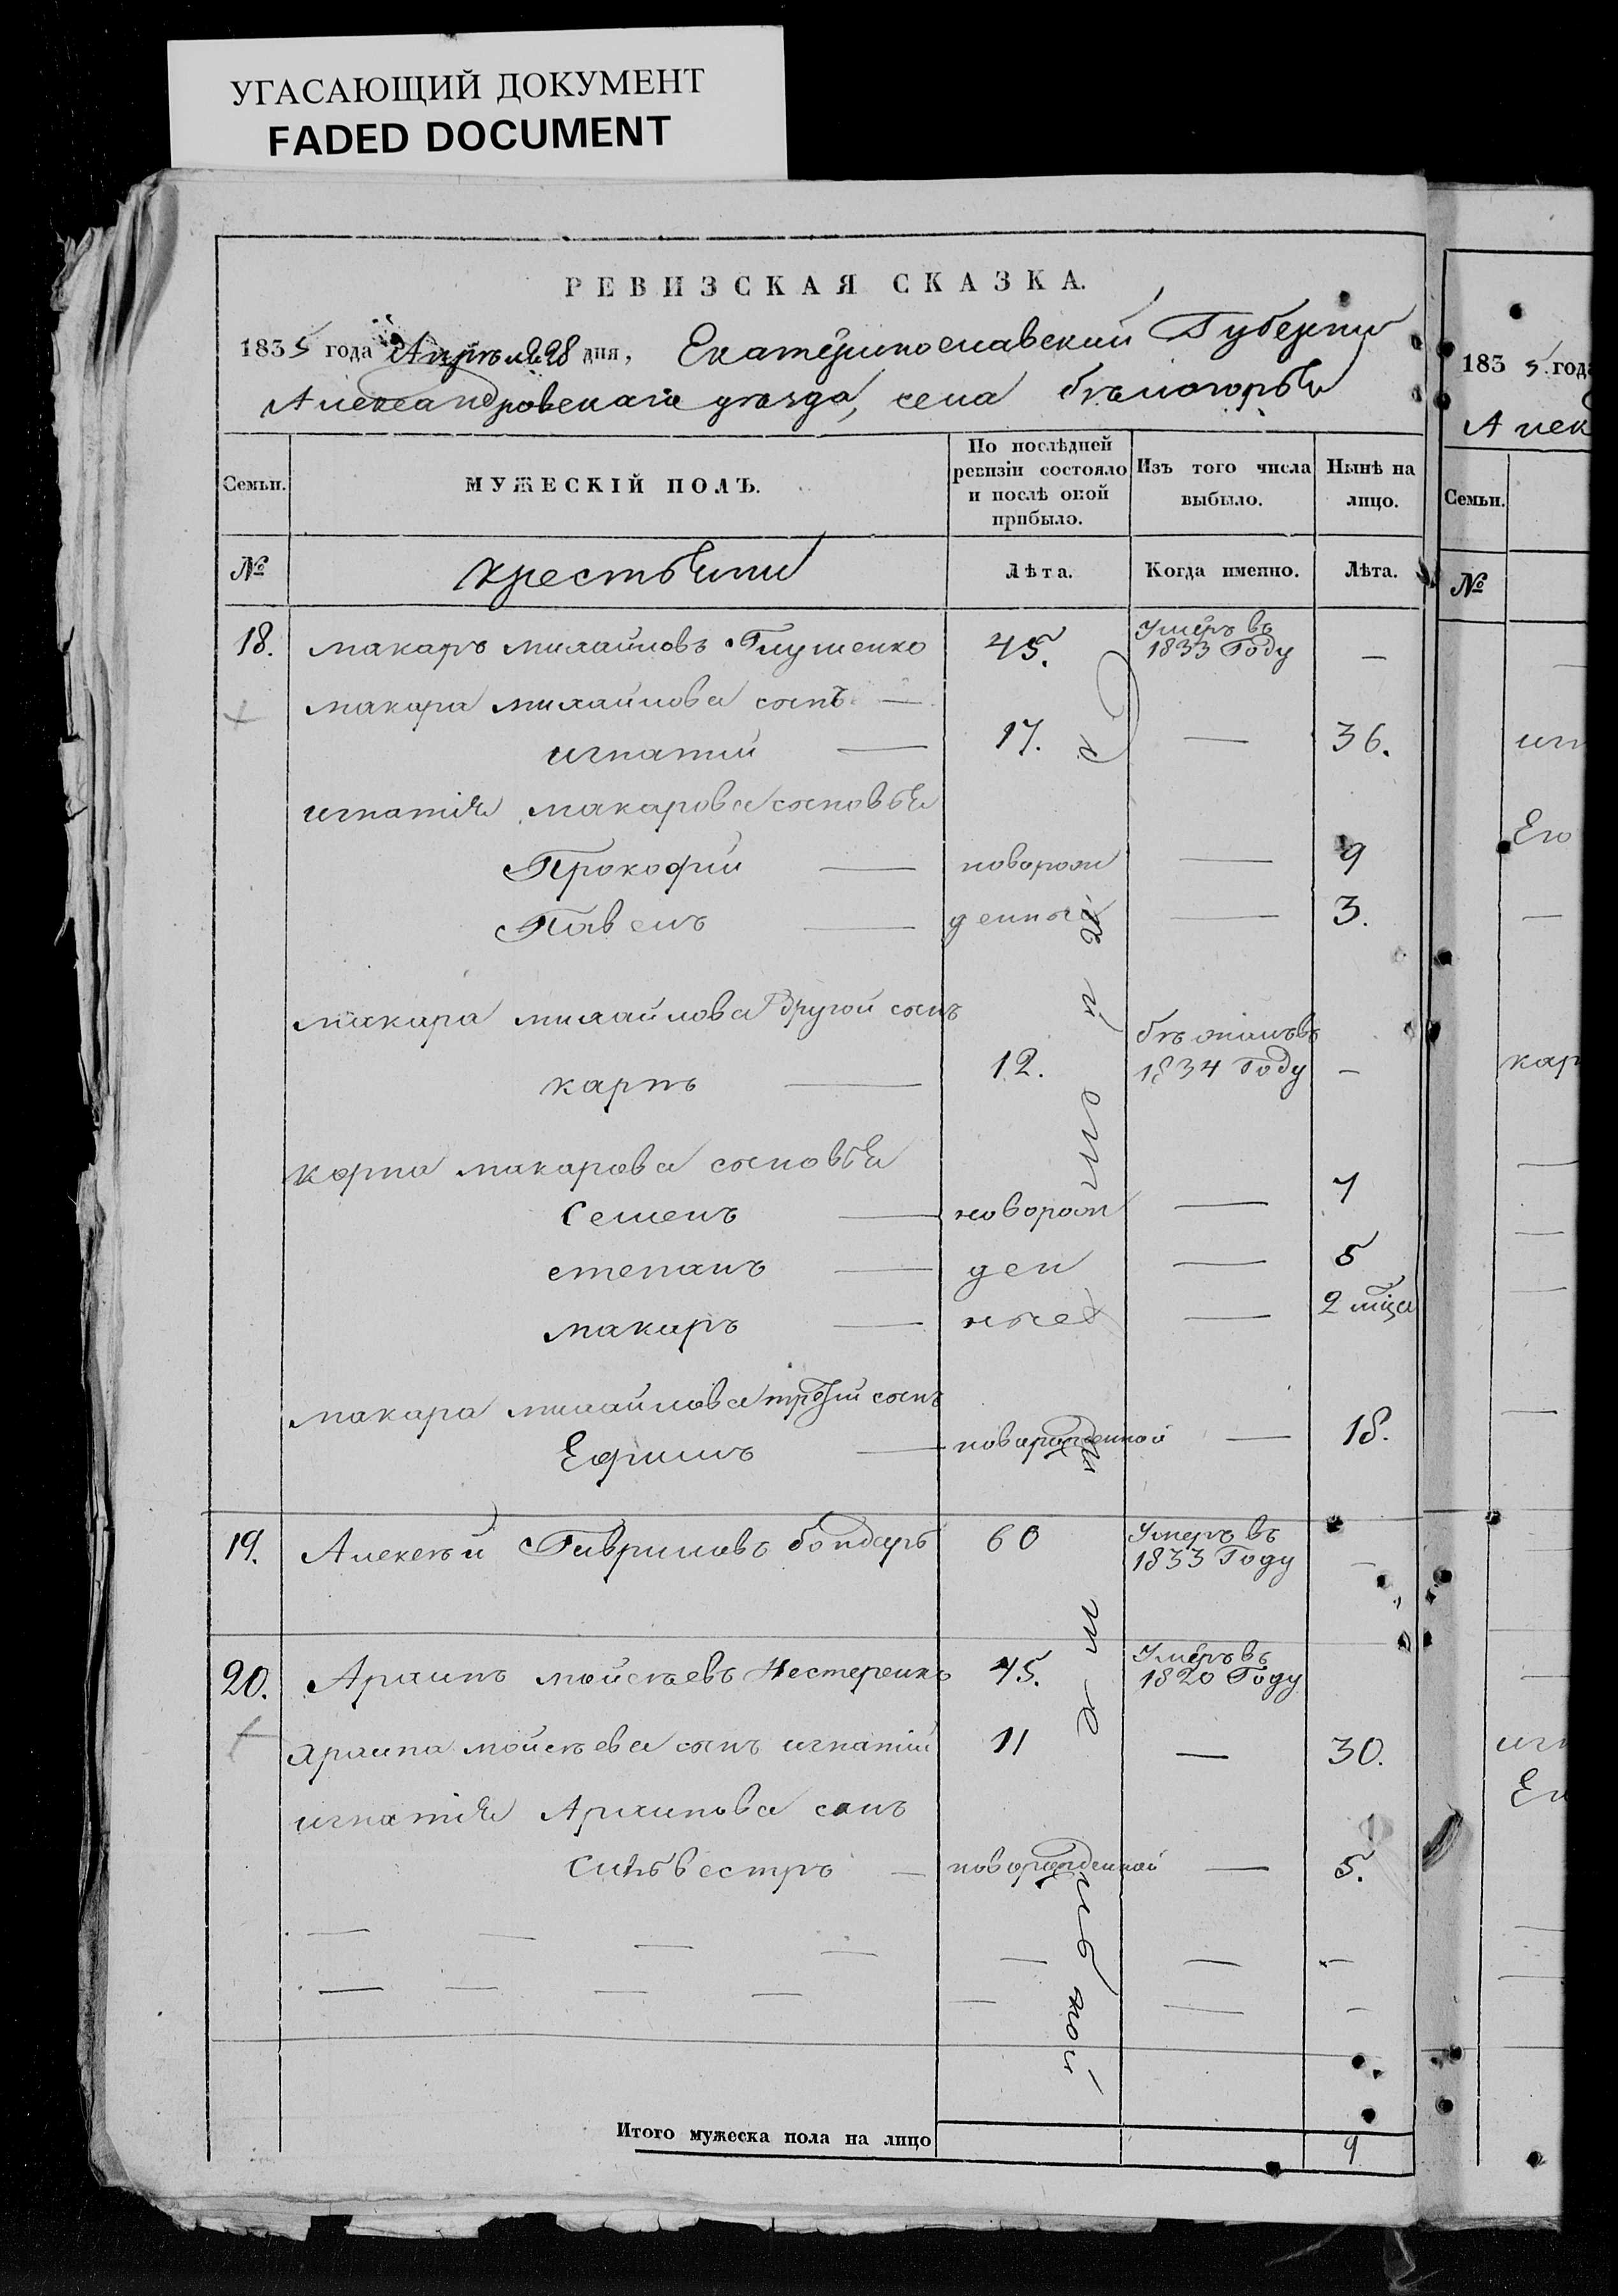 УГАСАЮЩИЙ ДОКУМЕНТ
FADED DOCUMENT
РЕВИЗСКАЯ СКАЗКА.
1835 года Апреля 28 дня, Екатеринославской Губернии
Александровского уезда, села белогорья
Семьи.
МУЖЕСКІЙ ПОЛЪ.
По послѣдней
ревизіи состояло
и послѣ оной
прибыло.
Изъ того числа
выбыло.
Нынѣ на
лицо.
№ крестьяни Лѣта. Когда именно. Лѣта.
18. макаръ михайловъ Глушенко 45. Умеръ въ 1833 Году —
макара михайлова сынъ —
игнатий — 17. — 36.
игнатія макарова сыновья
Прокофий — новорож — 9
Павелъ — денные — 3.
макара михайлова другой сынъ
карпъ — 12. бежалъ въ 1834 Году —
карпа макарова сыновья
Семенъ — новорож — 7
степанъ — ден — 5
макаръ — ные — 2 мца
макара михайлова третий сынъ
Ефимъ — новорожденной — 18.
19. Алексѣй Гавриловъ бондарь 60 Умеръ въ 1833 Году —
20. Архипъ мойсѣевъ Нестеренко 45. Умеръ въ 1820 Году
Архипа мойсѣева сынъ игнатій 11 — 30.
игнатія Архипова сынъ
Сильвестръ — новорожденной — 5.
Итого мужеска пола на лицо 9
183 5 года
Алек
Семьи.
№
Его
карп